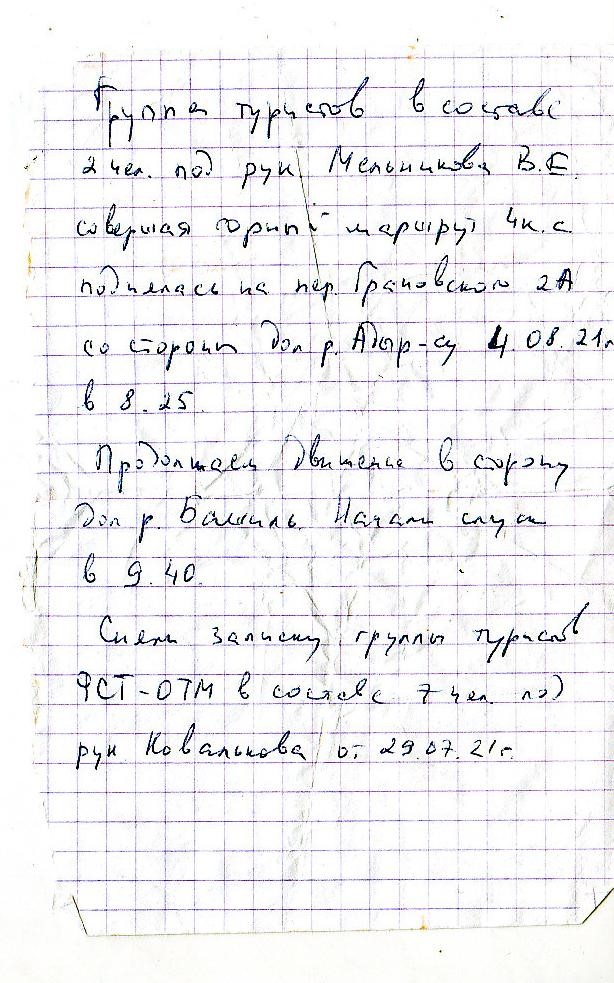 Группа туристов в составе
2 чел. под рук Мельникова В.Е.
совершая горный маршрут 4к.с.
поднялась на пер. Грановского 2А
со стороны дол р. Адыр-су 4.08.21г
в 8.25.
Продолжаем движение в сторону
дол р. Башиль. Начали спуск
в 9.40.
Сняли записку группы туристов
ФСТ-ОТМ в составе 7 чел. под
рук Ковалькова от 29.07.21г.